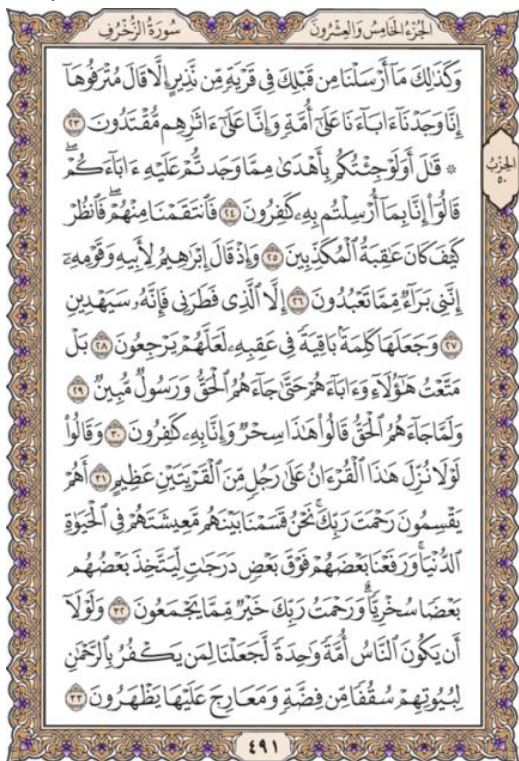 سُورَةُ الزُّخْرُفِ
الجُزْءُ الخَامِسُ وَالعِشْرُونَ
وَكَذَٰلِكَ مَآ أَرْسَلْنَا مِن قَبْلِكَ فِي قَرْيَةٖ مِّن نَّذِيرٍ إِلَّا قَالَ مُتْرَفُوهَآ
إِنَّا وَجَدْنَآ ءَابَآءَنَا عَلَىٰٓ أُمَّةٖ وَإِنَّا عَلَىٰٓ ءَاثَٰرِهِم مُّقْتَدُونَ ٢٣
۞ قَٰلَ أَوَلَوْ جِئْتُكُم بِأَهْدَىٰ مِمَّا وَجَدتُّمْ عَلَيْهِ ءَابَآءَكُمْۖ
قَالُوٓاْ إِنَّا بِمَآ أُرْسِلْتُم بِهِۦ كَٰفِرُونَ ٢٤ فَٱنتَقَمْنَا مِنْهُمْۖ فَٱنظُرْ
كَيْفَ كَانَ عَٰقِبَةُ ٱلْمُكَذِّبِينَ ٢٥ وَإِذْ قَالَ إِبْرَٰهِيمُ لِأَبِيهِ وَقَوْمِهِۦٓ
إِنَّنِي بَرَآءٞ مِّمَّا تَعْبُدُونَ ٢٦ إِلَّا ٱلَّذِي فَطَرَنِي فَإِنَّهُۥ سَيَهْدِينِ
٢٧ وَجَعَلَهَا كَلِمَةَۢ بَاقِيَةٗ فِي عَقِبِهِۦ لَعَلَّهُمْ يَرْجِعُونَ ٢٨ بَلْ
مَتَّعْتُ هَٰٓؤُلَآءِ وَءَابَآءَهُمْ حَتَّىٰ جَآءَهُمُ ٱلْحَقُّ وَرَسُولٞ مُّبِينٞ ٢٩
وَلَمَّا جَآءَهُمُ ٱلْحَقُّ قَالُواْ هَٰذَا سِحْرٞ وَإِنَّا بِهِۦ كَٰفِرُونَ ٣٠ وَقَالُواْ
لَوْلَا نُزِّلَ هَٰذَا ٱلْقُرْءَانُ عَلَىٰ رَجُلٖ مِّنَ ٱلْقَرْيَتَيْنِ عَظِيمٍ ٣١ أَهُمْ
يَقْسِمُونَ رَحْمَتَ رَبِّكَۚ نَحْنُ قَسَمْنَا بَيْنَهُم مَّعِيشَتَهُمْ فِي ٱلْحَيَوٰةِ
ٱلدُّنْيَاۚ وَرَفَعْنَا بَعْضَهُمْ فَوْقَ بَعْضٖ دَرَجَٰتٖ لِّيَتَّخِذَ بَعْضُهُم
بَعْضٗا سُخْرِيّٗاۗ وَرَحْمَتُ رَبِّكَ خَيْرٞ مِّمَّا يَجْمَعُونَ ٣٢ وَلَوْلَآ
أَن يَكُونَ ٱلنَّاسُ أُمَّةٗ وَٰحِدَةٗ لَّجَعَلْنَا لِمَن يَكْفُرُ بِٱلرَّحْمَٰنِ
لِبُيُوتِهِمْ سُقُفٗا مِّن فِضَّةٖ وَمَعَارِجَ عَلَيْهَا يَظْهَرُونَ ٣٣
الحِزْبُ
٥٠
٤٩١